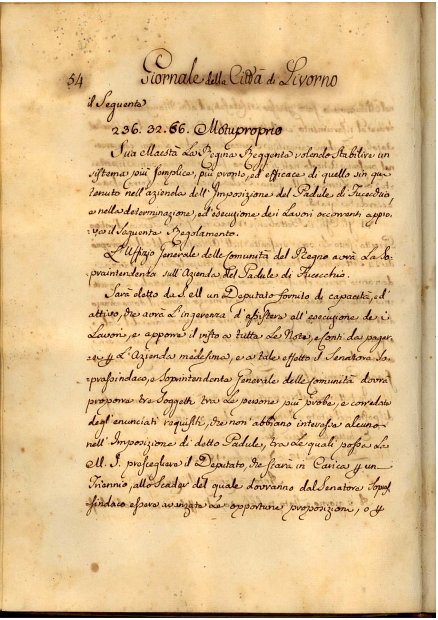 54 Giornale della Città di Livorno
il Seguente
236. 32. 66. Motuproprio
Sua Maestà La Regina Reggente volendo stabilire un
sistema più semplice, più pronto, ed efficace di quello sin qui
tenuto nell'azienda dell'Imposizione del Padule di Fucecchio
e nella determinazione, ed esecuzione dei Lavori occorrenti appro-
va il Seguente Regolamento.
L'Uffizio Generale delle comunità del Regno avrà La So-
praintendenza sull'Azienda del Padule di Fucecchio.
Sarà eletto da S. M un Deputato fornito di capacità, ed
attivo, che avrà L'ingerenza d'assistere all'esecuzione dei
Lavori, e apporre il visto a tutte Le Note, e conti da pagar-
si p L'Azienda medesima, e a tale effetto il Senatore So-
prassindaco, e Soprintendente Generale delle comunità dovrà
proporre tre Soggetti tra Le persone più probe, e corredate
degl'enunciati requisiti, che non abbiano interesse alcuno
nell'Imposizione di detto Padule, tra Le quali possa La
M. S. prescegliere il Deputato, che starà in Carica p un
Triennio, allo Scader del quale dovranno dal Senatore Sopras
sindaco essere avanzate Le opportune proposizioni, o p